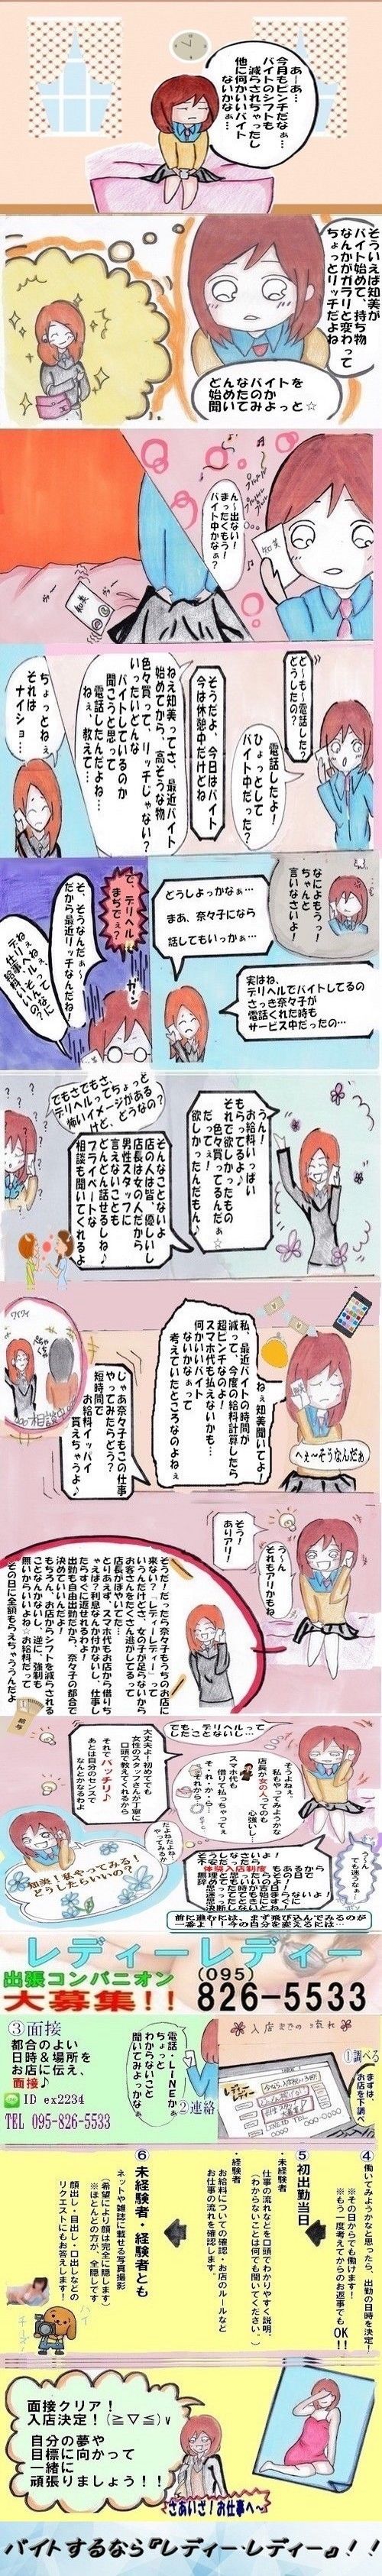 あーあ…
今月もピンチだなぁ…
バイトのシフトも
減らされちゃったし
他に何かいいバイト
ないかなぁ…
そういえば知美が
バイト始めて、持ち物
なんかがガラリと変わって
ちょっとリッチだよね
どんなバイトを
始めたのか
聞いてみよっと☆
知美
ん〜出ない！
まったくもう！
バイト中かなぁ？
ど〜も〜電話した？
どうしたの？
電話したよ！
ひょっとして
バイト中だった？
そうだよ、今日はバイト
今は休憩中だけどね
ねえ知美ってさ、最近バイト
始めてから、高そうな物
色々買って、リッチじゃない？
いったいどんな
バイトしているのか
聞こうと思って
電話したんだよね…
ねぇ、教えて…
ちょっとねぇ
それは
ナイショ…
なによもうっ！
ちゃんと
言いなさいよ！
どうしよっかなぁ…
まあ、奈々子になら
話してもいっかぁ…
実はね、
デリヘルでバイトしてるの
さっき奈々子が
電話くれた時も
サービス中だったの…
で、デリヘル
まぢでぇ？
ガーン
そ、そうなんだぁ〜
だから最近リッチなんだね
うん！
お給料いっぱい
もらってるよ♪
それで欲しかったもの
色々買ってるんだぁ☆
だってぇ！
欲しかったんだもん♪
でもさでもさ、
デリヘルってちょっと
怖いイメージがある
けど、どうなの？
そんなことないよ
店の人は皆、優しいし
店長は女の人だから
男性スタッフに
言えないことも
どんどん話せるしね♪
プライベートな
相談も聞いてくれるよ
へぇ〜そうなんだぁ
ねぇ知美聞いてよ！
私、最近バイトの時間が
減って、今度の給料計算したら
超ピンチなのよ！
スマホ代も払えないかも…
何かいいバイト
ないかなぁって
考えていたところなのよねぇ
じゃあ奈々子もこの仕事
やってみたらどう？
短時間で
お給料イッパイ
貰えちゃうよ♪
う〜ん
それもアリかもね
そう！
ありアリ！
そうだ！だったら奈々子もうちのお店に
来ない？「レディーレディー」って
いうんだけど、女の子が足らないから
お客さんをたくさん逃がしてるって
店長がぼやいてた…
とりあえず、スマホ代もお店から借りち
ゃえば？利息なんか付かないし、仕事し
たらすぐに返せるわよ！
出勤も自由出勤だから、奈々子の都合で
決めていいんだよ！
もちろん、お店からシフトを減らされる
ことなんかないし、逆に、強制も
無いからいいよね☆お給料だって
その日に全額もらえちゃうんだよ
給与
でも、デリヘルって
したことないし…
大丈夫よ！初めてでも
女性のスタッフさんが丁寧に
口頭で教えてくれるから
それでバッチリ♪
あとは自分のセンスで
なんとかなるわよ
そうよねぇ、
私もやってみようかな
店長が女の人ってのも
心強いし…
スマホ代も
借りて払っちゃってぇ
そ・れ・か・ら…
それから…
う〜ん
でも迷うなぁ〜
だよねだよね、
やってみるか
知美！私やってみる！
どうしたらいいの？
体験入店制度
前に進むには、まず飛び込んでみるのが
一番よ！！今の自分を変えるには…
レディーレディー
出張コンパニオン
大募集！！
(095)
826-5533
入店までの流れ
①調べる
まずは、
お店を下調べ
②連絡
電話・LINEかぁ
ちょっと
わからないこと
聞いてみよっかなぁ
③面接
都合のよい
日時＆場所を
お店に伝え、
面接♪
ID ex2234
TEL 095-826-5533
④
働いてみようかなと思ったら、出勤の日時を決定！
※その日からでも働けます！
※もう一度考えてからのお返事でもOK！！
⑤
初出勤当日
・未経験者
仕事の流れなどを口頭でわかりやすく説明。
（わからないことは何でも聞いてください。）
・経験者
お給料についての確認・お店のルールなど
お仕事の流れを確認します。
⑥
未経験者・経験者とも
ネットや雑誌に載せる写真撮影
（希望により顔は完全に隠します）
※ほとんどの方が、全隠しです
顔出し・目出し・口出しなどの
リクエストにもお答えします！
ハイ
チーズ
面接クリア！
入店決定！(≧▽≦)v
自分の夢や
目標に向かって
一緒に
頑張りましょう！！
さあいざ！お仕事へ〜
バイトするなら『レディーレディー』！！